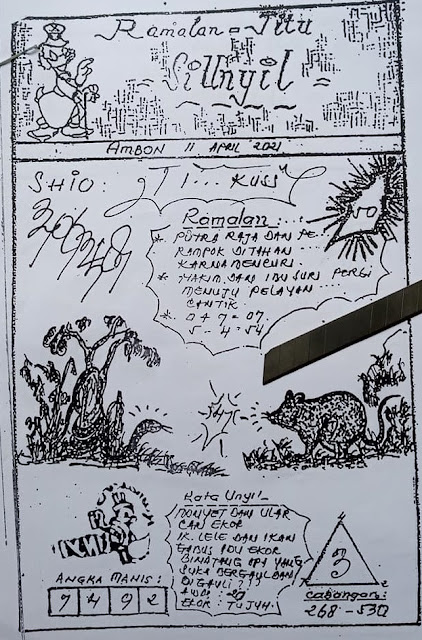 Ramalan = Jitu
Si Unyil
AMBON 11 APRIL 2021
SHIO : TI... KUSS
50
Ramalan : . .
* PUTRA RAJA DAN PE-
RAMPOK DITAHAN
KARNA MENCURI.
* HAKIM DAN IBU SURI PERGI
MENUJU PELAYAN
CANTIK
* 0 + 7 = 07
5 - 4 = 54
547
Kata Unyil
MONYET DAN ULAR
CARI EKOR
IK. LELE DAN IKAN
GABUS ADU EKOR
BINATANG APA YANG
SUKA BERGAUL DAN
DIGAULI ???
EKOR : TUJUH.
ANGKA MANIS :
7 4 9 2
4
3
7 2
Cabangan :
268 - 530